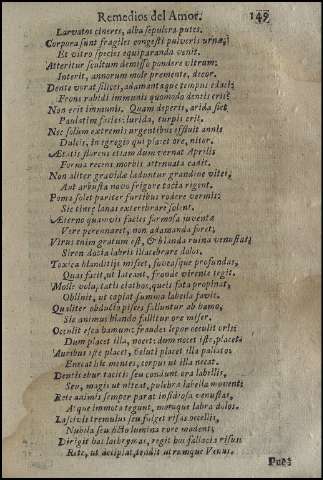 Remedios del Amor. 149
Larvatos cineres, alba sepulcra putes.
Corpora sunt fragiles congesti pulveris urnæ,
Et vitro species equiparanda venit.
Atteritur scultum demisso pondere vitrum:
Interit, annorum mole premente, decor.
Dente vorat silices, adamantaque tempus edaci:
Frons rabidi immunis quomodo dentis erit?
Non erit immunis. Quam deperis, arida fiet
Paulatim facies: lurida, turpis erit.
Nec solum extremis urgentibus effluit annis
Dulcis, in egregio qui placet ore, nitor.
Ætatis florens etiam dum vernat Aprilis
Forma recens morbis attenuata cadit.
Non aliter gravidæ laduntur grandine vites,
Aut arbusta novo frigore tacta rigent.
Poma solet pariter furtibus rodere vermis:
Sic tinea lanas exterebrare solent.
Æterno quamvis facies formosa juventa
Vere perennaret, non adamanda foret,
Virus enim gratum est, & blanda ruina venustas;
Siren docta labris illacebrare dolos.
Toxica blanditiis miscet, foveasque profundas,
Quas facit, ut lateant, fronde virente tegit.
Molle vola, tacti clathos, queis fata propinat,
Oblinit, ut capiat summa labella favis.
Qualiter obducto pisces falluntur ab hamo,
Sic animus blando fallitur ore miser.
Occulit esca hamum: fraudes lepor occulit oris:
Dum placet illa, nocet: dum nocet iste, placet.
Auribus iste placet, veluti placet illa palato:
Enecat hic mentes, corpus ut illa necat.
Dentis ebur tacitis seu conlunt ora labellis,
Seu, magis ut niteat, pulchra labella movent;
Rete animis semper parat insidiosa venustas,
Atque immota tegunt, motaque labra dolos.
Lascivis tremulus seu fulget risus ocellis,
Nubila seu lecto lumina rore madent;
Dirigit has lachrymas, regit hos fallacis risus:
Rete, ut decipiat, tendit utrumque Venus.
Pues